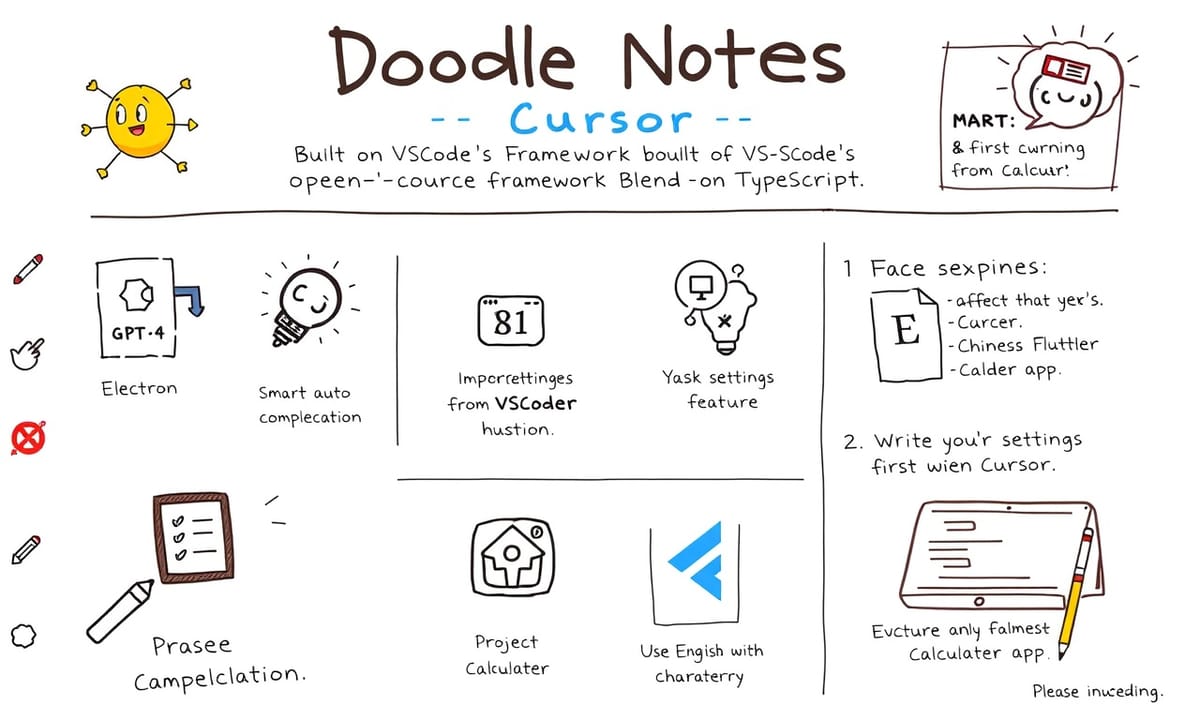 Doodle Notes
-- Cursor --
Built on VSCode's Framework bouilt of VS-Scode's
opeen-'-cource framework Blend -on TypeScript.
MART:
& first curning
from Calcuır!
GPT-4
Electron
Smart auto
complecation
81
Imporrettinges
from VSCoder
hustion.
Yask settings
feature
1 Face sexpines:
E
-affect that yer's.
-Curcer.
-Chiness Fluttler
-Calder app.
2. Write you'r settings
first wien Cursor.
Prasee
Campelclation.
Project
Calculater
Use Engish with
charaterry
Evcture anly falmest
Calculater app.
Please inuceding.